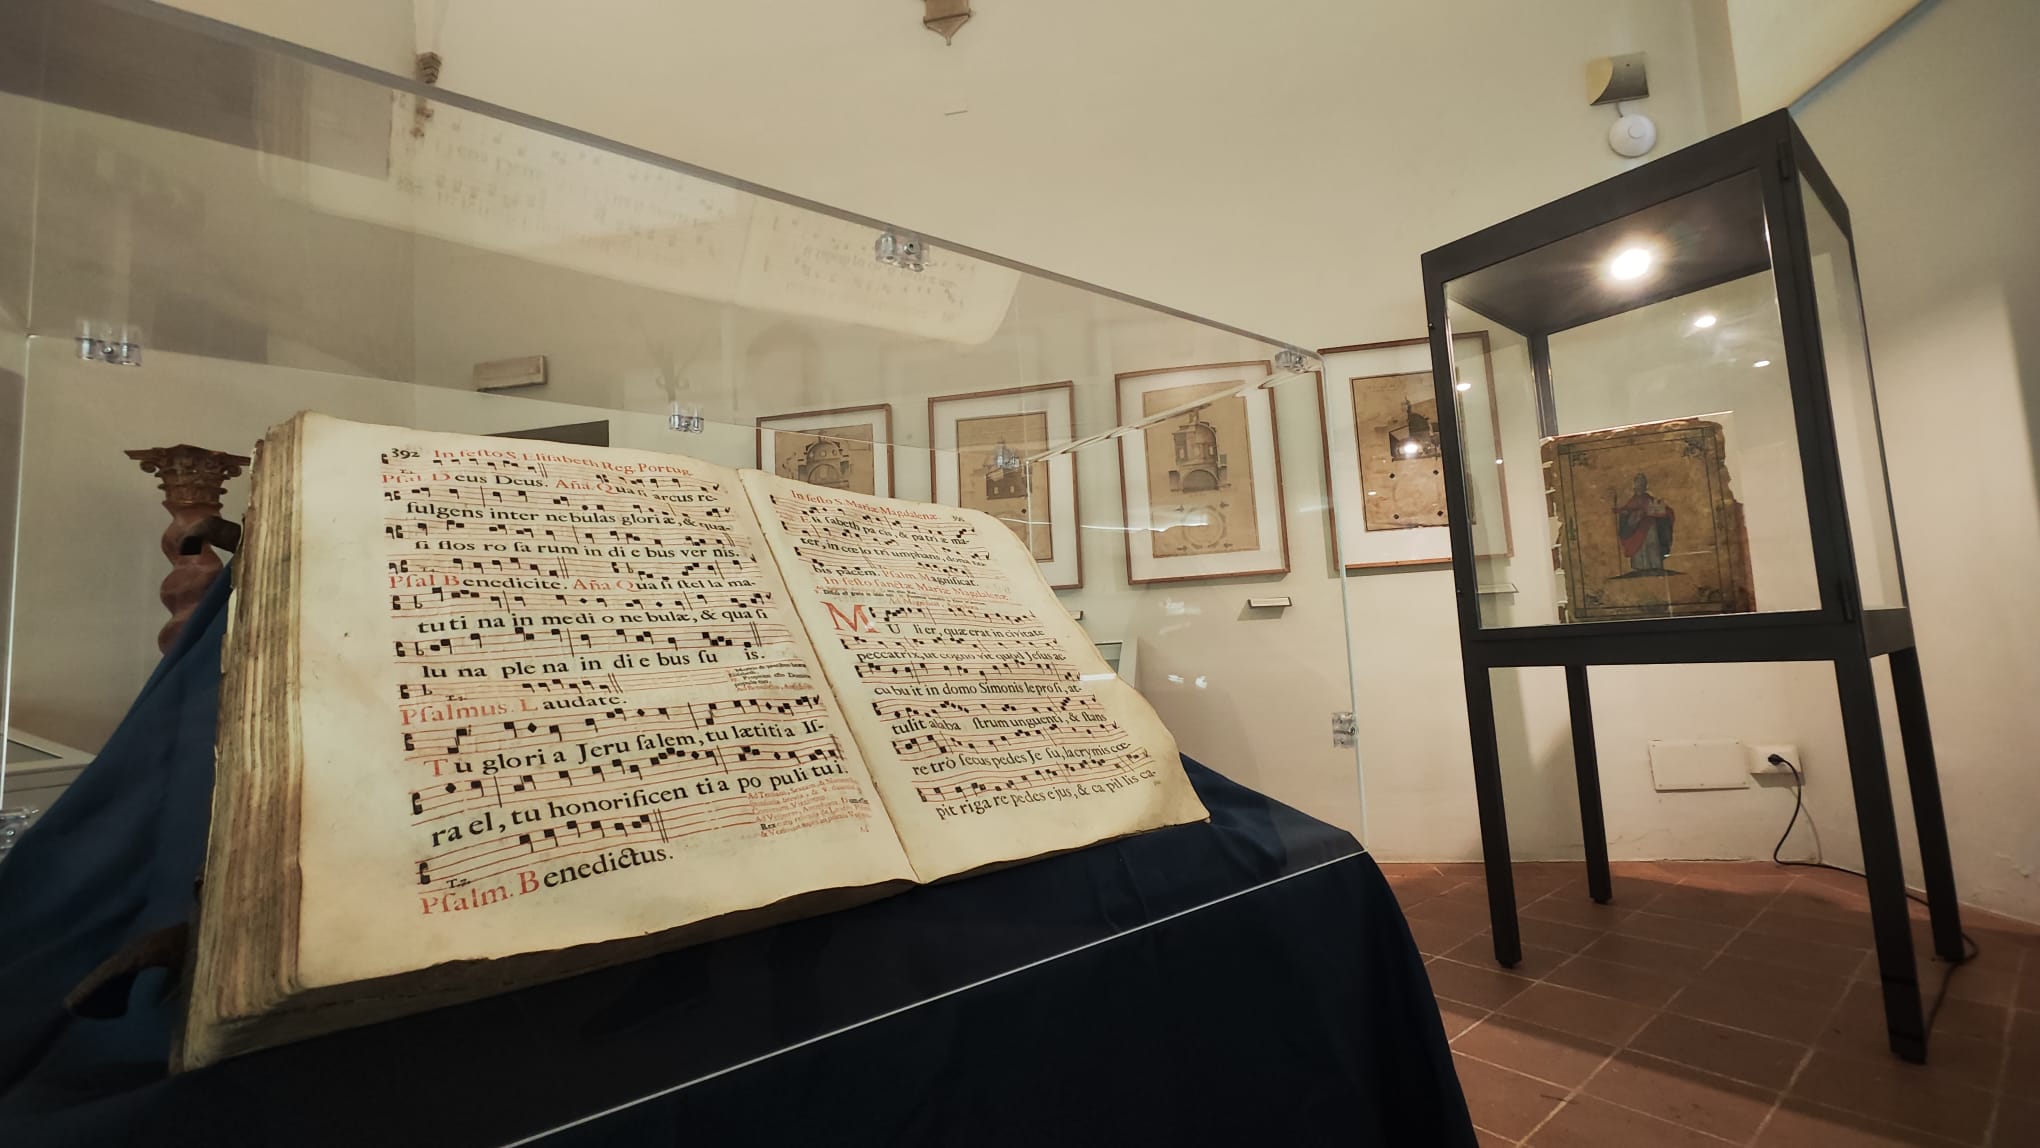 392 In feſto S. Eliſabeth Reg. Portug.
Pſal. Deus Deus. Aña. Quaſi arcus re-
fulgens inter nebulas gloriæ, & qua-
ſi flos ro ſa rum in di e bus ver nis.
Pſal Benedicite. Aña. Qua ſi ſtel la ma-
tu ti na in medi o ne bulæ, & qua ſi
lu na ple na in di e bus ſu is.
Pſalmus. Laudate.
Tu glori a Jeru ſalem, tu lætiti a Iſ-
ra el, tu honorificen ti a po puli tu i.
Pſalm. Benedictus.
In feſto S. Mariæ Magdalenæ.
E li ſabeth pa cis, & pa tri æ ma-
ter, in cœlo tri umphans, dona no-
bis pacem. Pſalm. Magnificat.
In feſto ſanctæ Mariæ Magdalenæ.
MU li er, quæ erat in civitate
peccatrix, ut cogno vit quod Jeſus ac-
cu bu it in domo Simonis leproſi, at-
tulit alaba ſtrum unguenti, & ſtans
re trò ſecus pedes Je ſu, lacrymis cœ-
pit riga re pedes ejus, & ca pil lis ca-